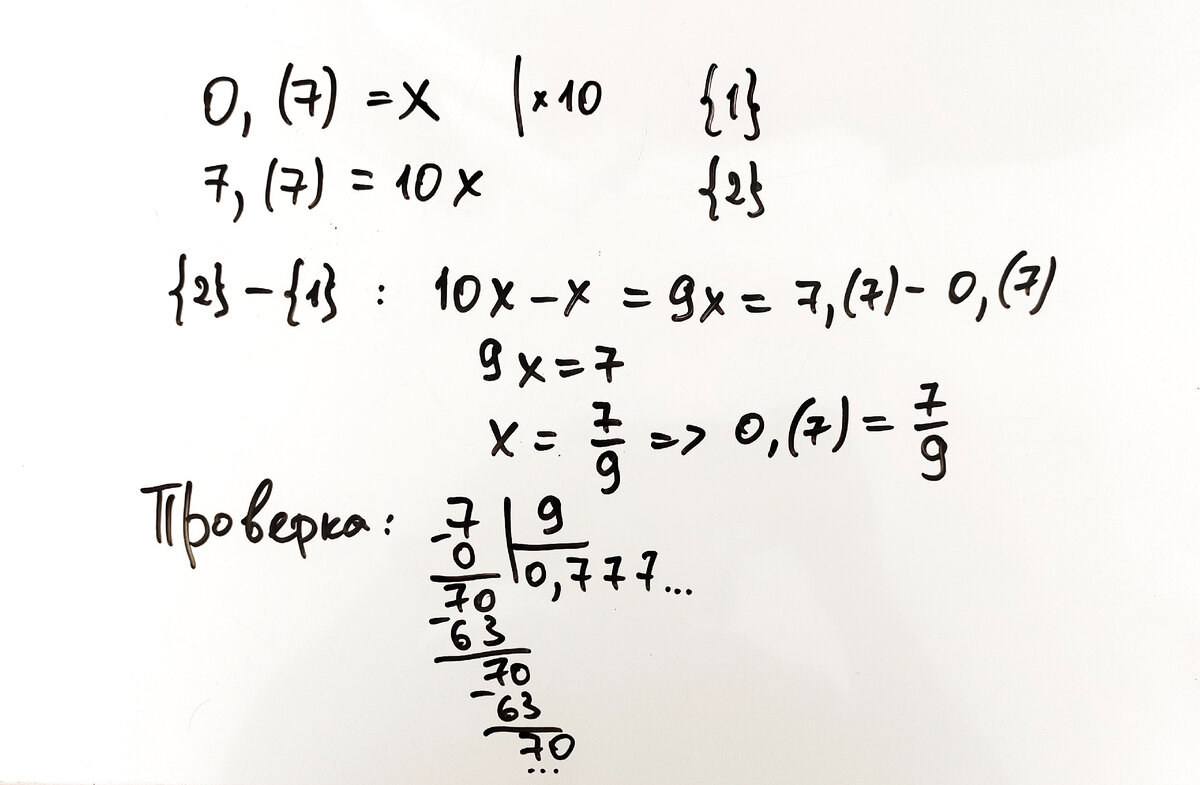 0,(7) = x | × 10 {1}
7,(7) = 10x {2}
{2} - {1} : 10x - x = 9x = 7,(7) - 0,(7)
9x = 7
x = 7/9 => 0,(7) = 7/9
Проверка: -7 | 9
0 | 0,777...
70
-63
70
-63
70
...